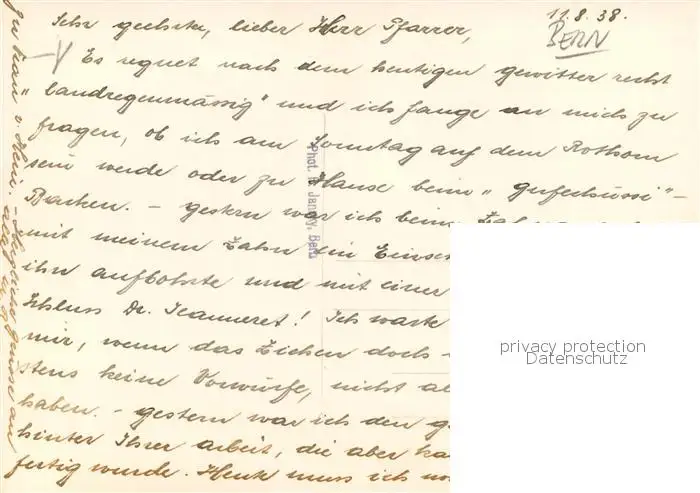 11.8.38.
BERN
Sehr geehrter, lieber Herr Pfarrer,
Es regnet nach dem heutigen gewitter recht
"landregenmässig" und ich fange an mich zu
fragen, ob ich am Sonntag auf dem Rothorn
sein werde oder zu Hause beim "gufechüssi"-
Backen. - gestern war ich beim
mit meinem Zahn ein
ihn aufbohrte und mit einer
Schluss Dr. Jeanneret! Ich warte
mir, wenn das Ziehen doch
stens keine Vorwürfe, nicht
haben. - gestern war ich den
hinter Ihrer arbeit, die aber
fertig wurde. Heute muss ich
Phot. Jany, Bern
privacy protection
Datenschutz